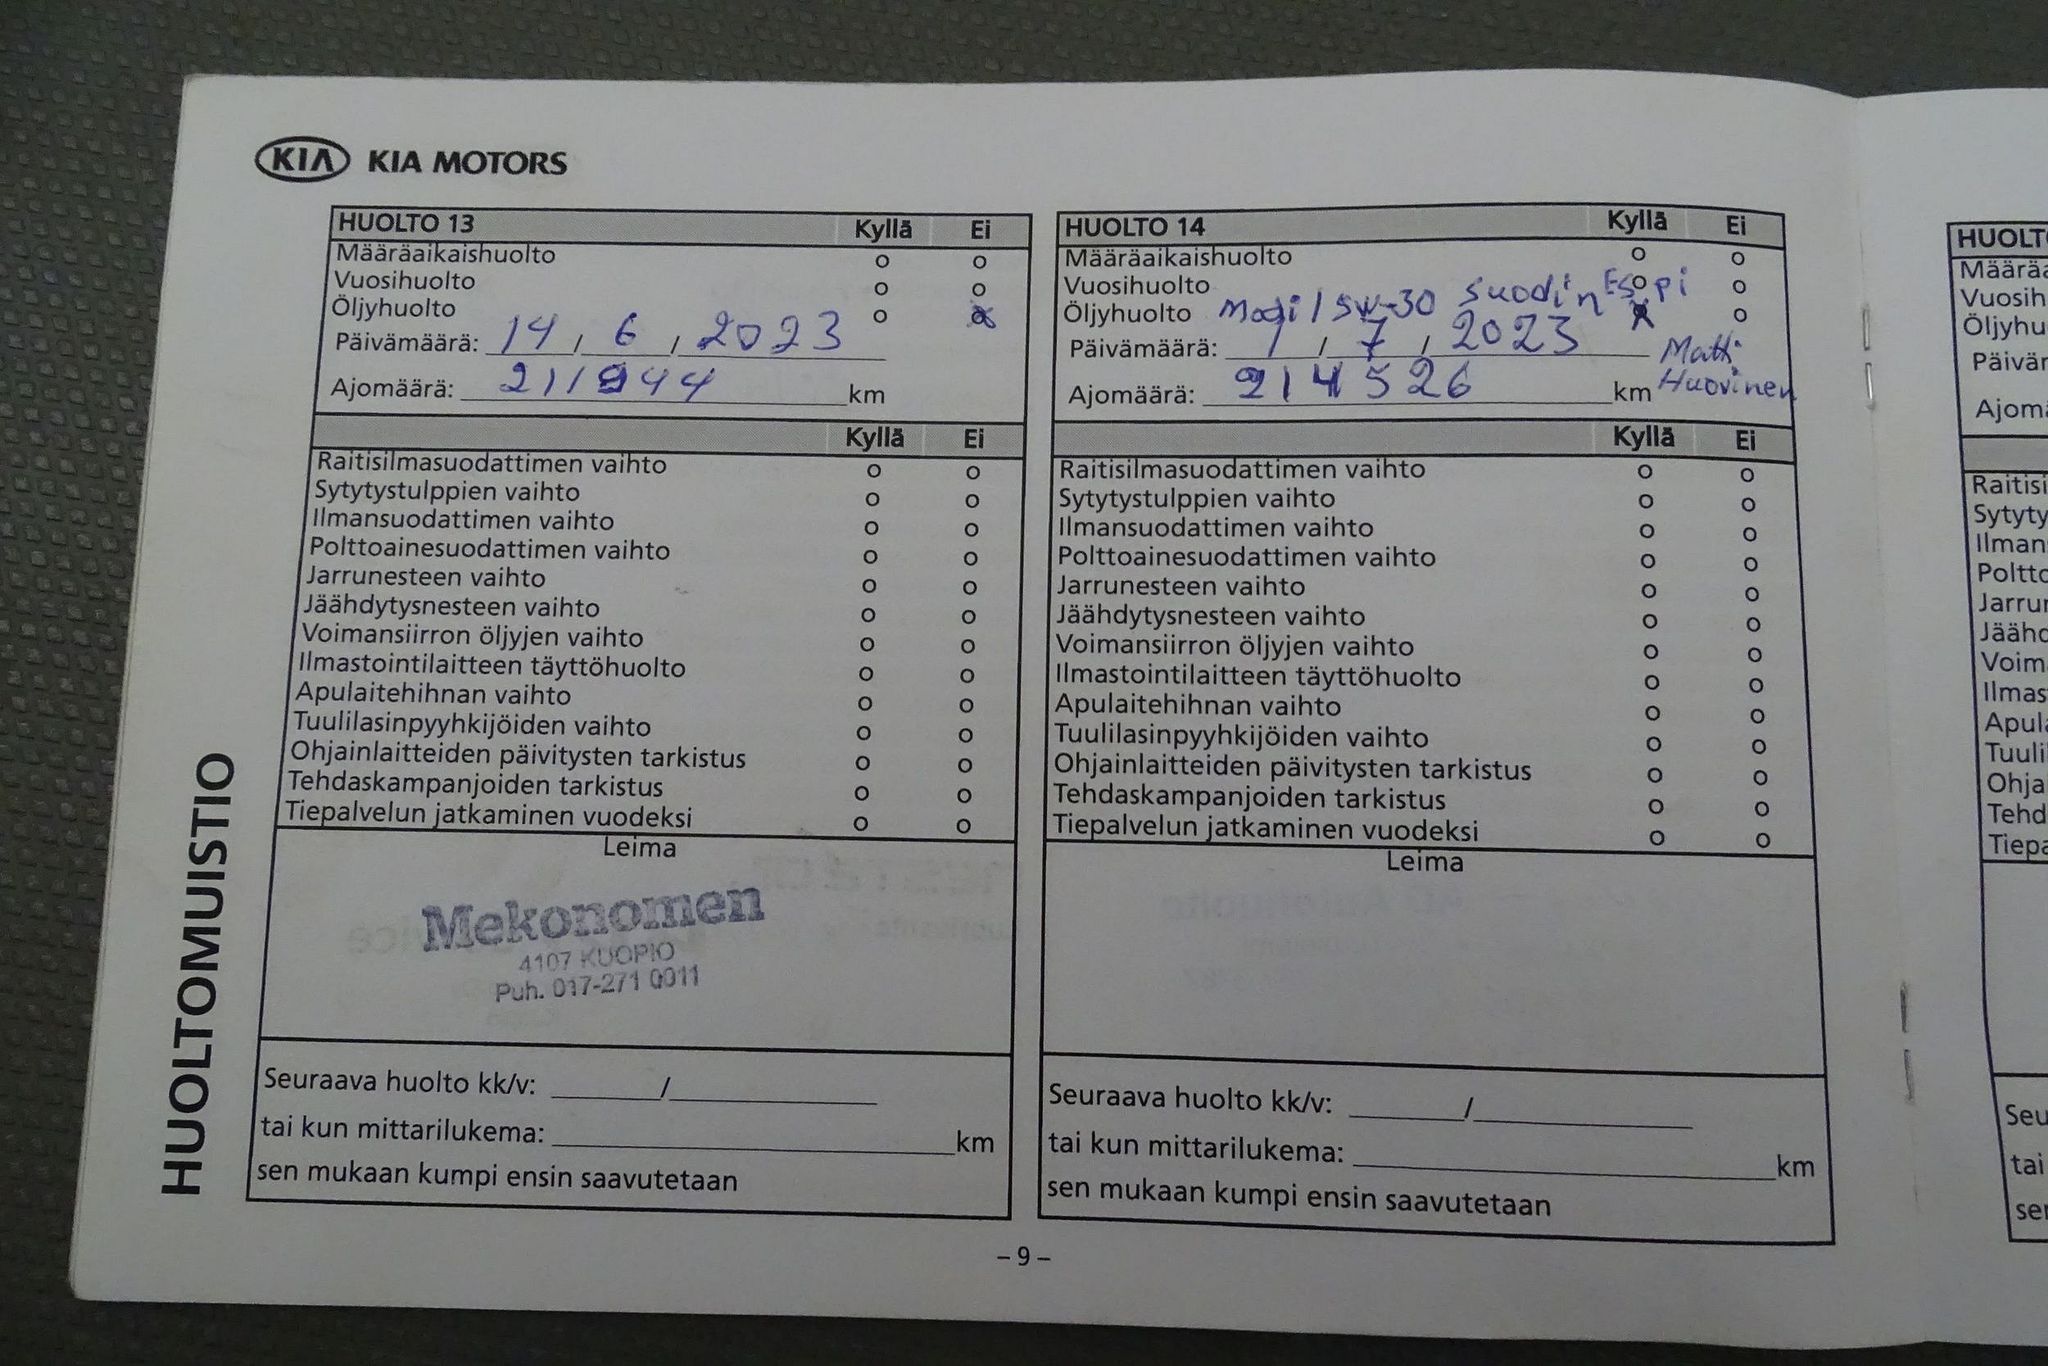 KIA KIA MOTORS
HUOLTOMUISTIO
HUOLTO 13 Kyllä Ei
Määräaikaishuolto o o
Vuosihuolto o o
Öljyhuolto o x
Päivämäärä: 14 / 6 / 2023
Ajomäärä: 211944 km
Kyllä Ei
Raitisilmasuodattimen vaihto o o
Sytytystulppien vaihto o o
Ilmansuodattimen vaihto o o
Polttoainesuodattimen vaihto o o
Jarrunesteen vaihto o o
Jäähdytysnesteen vaihto o o
Voimansiirron öljyjen vaihto o o
Ilmastointilaitteen täyttöhuolto o o
Apulaitehihnan vaihto o o
Tuulilasinpyyhkijöiden vaihto o o
Ohjainlaitteiden päivitysten tarkistus o o
Tehdaskampanjoiden tarkistus o o
Tiepalvelun jatkaminen vuodeksi o o
Leima
Mekonomen
4107 KUOPIO
Puh. 017-271 0011
Seuraava huolto kk/v: /
tai kun mittarilukema: km
sen mukaan kumpi ensin saavutetaan
HUOLTO 14 Kyllä Ei
Määräaikaishuolto o o
Vuosihuolto o o
Öljyhuolto 5w-30 suodin x o
Päivämäärä: 1 / 7 / 2023 Matti
Ajomäärä: 214526 km Huovinen
Kyllä Ei
Raitisilmasuodattimen vaihto o o
Sytytystulppien vaihto o o
Ilmansuodattimen vaihto o o
Polttoainesuodattimen vaihto o o
Jarrunesteen vaihto o o
Jäähdytysnesteen vaihto o o
Voimansiirron öljyjen vaihto o o
Ilmastointilaitteen täyttöhuolto o o
Apulaitehihnan vaihto o o
Tuulilasinpyyhkijöiden vaihto o o
Ohjainlaitteiden päivitysten tarkistus o o
Tehdaskampanjoiden tarkistus o o
Tiepalvelun jatkaminen vuodeksi o o
Leima
Seuraava huolto kk/v: /
tai kun mittarilukema: km
sen mukaan kumpi ensin saavutetaan
– 9 –